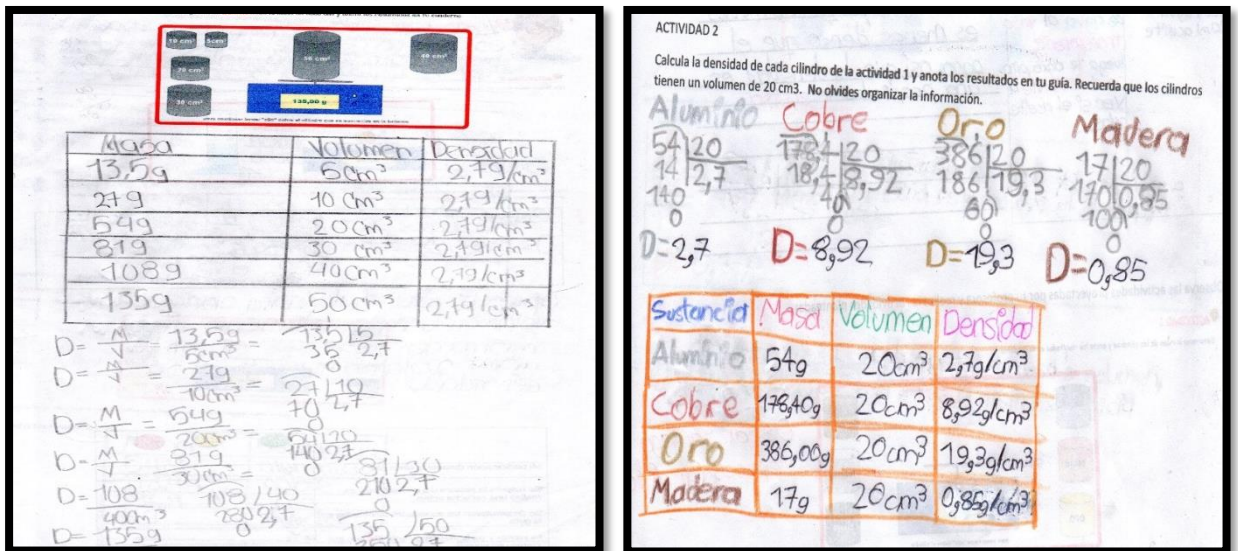 10 cm³ 5cm³
20 cm³
30 cm³
50 cm³
40 cm³
135,00 g
Masa Volumen Densidad
13,5g 5cm³ 2,7g/cm³
27g 10 cm³ 2,7g/cm³
54g 20cm³ 2,7g/cm³
81g 30 cm³ 2,7g/cm³
108g 40cm³ 2,7g/cm³
135g 50cm³ 2,7g/cm³
D= M/V = 13,5g/5cm³ = 13,5 5
35 2,7
0
D= M/V = 27g/10cm³ = 27/10
70 2,7
0
D= M/V = 54g/20cm³ = 54/20
140 2,7
0
D= M/V = 81g/30cm³ = 81/30
210 2,7
0
D= 108/40cm³ 108/40
280 2,7
0
D= 135g 135/50
350 2,7
ACTIVIDAD 2
Calcula la densidad de cada cilindro de la actividad 1 y anota los resultados en tu guía. Recuerda que los cilindros
tienen un volumen de 20 cm3. No olvides organizar la información.
Aluminio Cobre Oro Madera
54 20 178,4 20 386 20 17 20
14 2,7 18,4 8,92 186 19,3 170 0,85
140 40 60 100
0 0 0 0
D=2,7 D=8,92 D=19,3 D=0,85
Sustancia Masa Volumen Densidad
Aluminio 54g 20cm³ 2,7g/cm³
Cobre 178,40g 20cm³ 8,92g/cm³
Oro 386,00g 20cm³ 19,3g/cm³
Madera 17g 20cm³ 0,85g/cm³